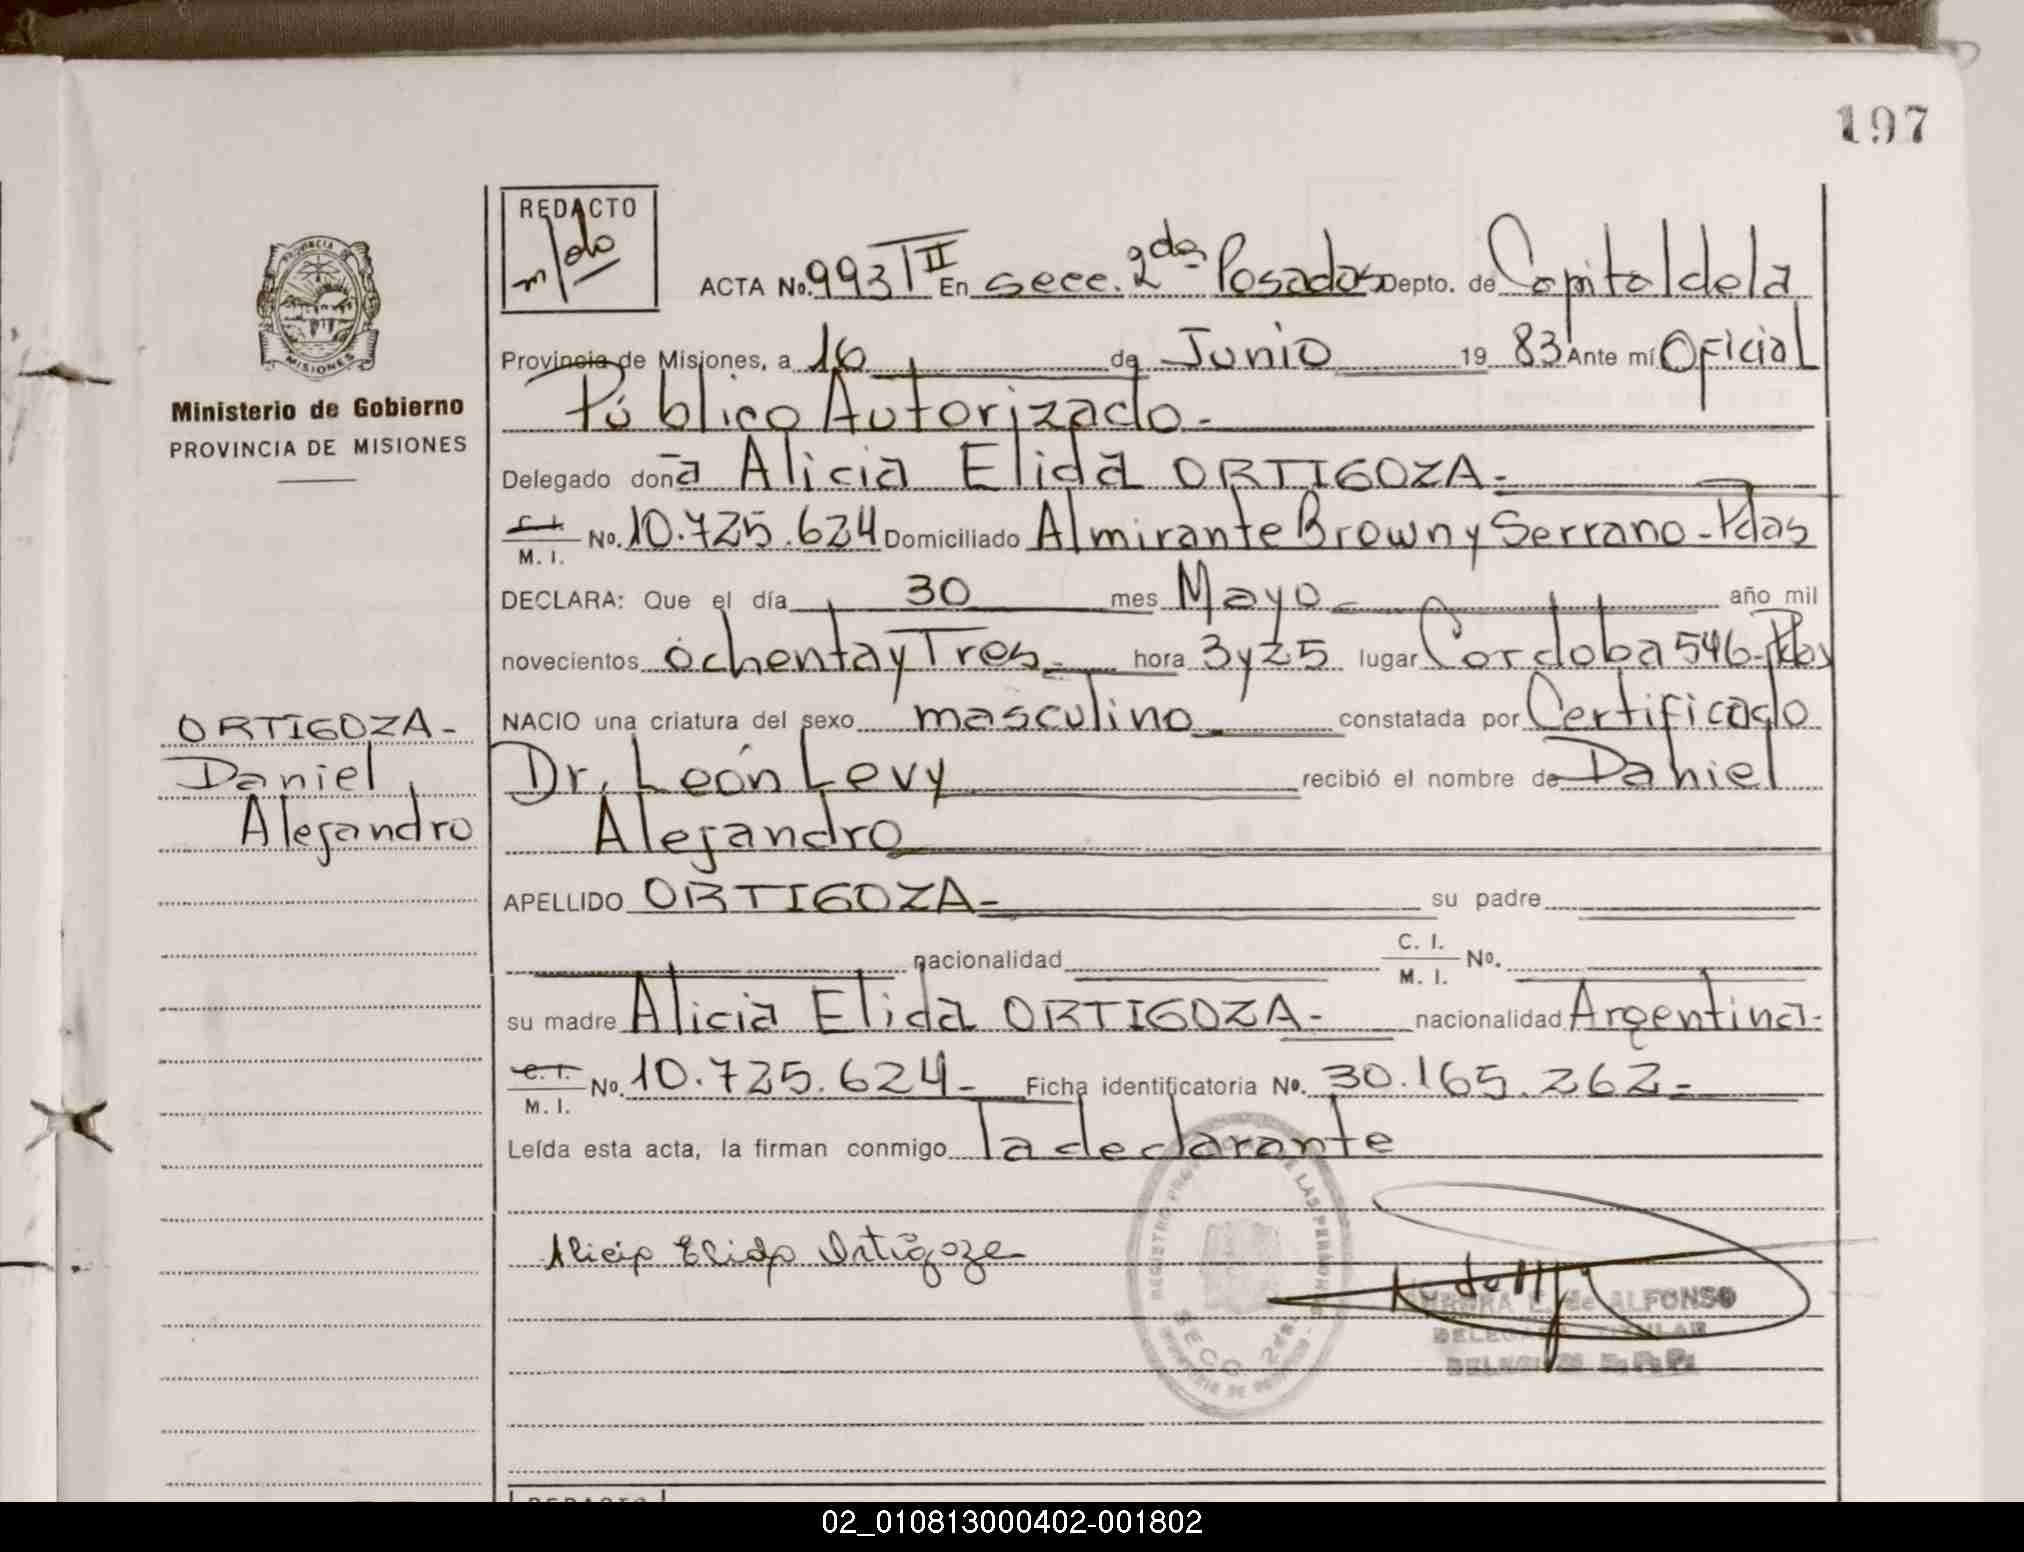 197
REDACTO
ACTA No. 993 T II En Secc. 2da Posadas Depto. de Capital de la
Provincia de Misiones, a 16 de Junio 19 83 Ante mí Oficial
Público Autorizado -
Ministerio de Gobierno
PROVINCIA DE MISIONES
Delegado doña Alicia Elida ORTIGOZA -
C. I.
M. I. No. 10.725.624 Domiciliado Almirante Brown y Serrano - Pdas
DECLARA: Que el día 30 mes Mayo - año mil
novecientos ochenta y Tres - hora 3 y 25 lugar Cordoba 546 - Pdas
ORTIGOZA -
Daniel
Alejandro
NACIO una criatura del sexo masculino constatada por Certificado
Dr. León Levy recibió el nombre de Daniel
Alejandro
APELLIDO ORTIGOZA - su padre
nacionalidad C. I.
M. I. No.
su madre Alicia Elida ORTIGOZA - nacionalidad Argentina -
C. I.
M. I. No. 10.725.624 - Ficha identificatoria No. 30.165.262 -
Leída esta acta, la firman conmigo la declarante
Alicia Elida Ortigoza
E. de ALFONSO
TITULAR
SECC. 2da.
02_010813000402-001802